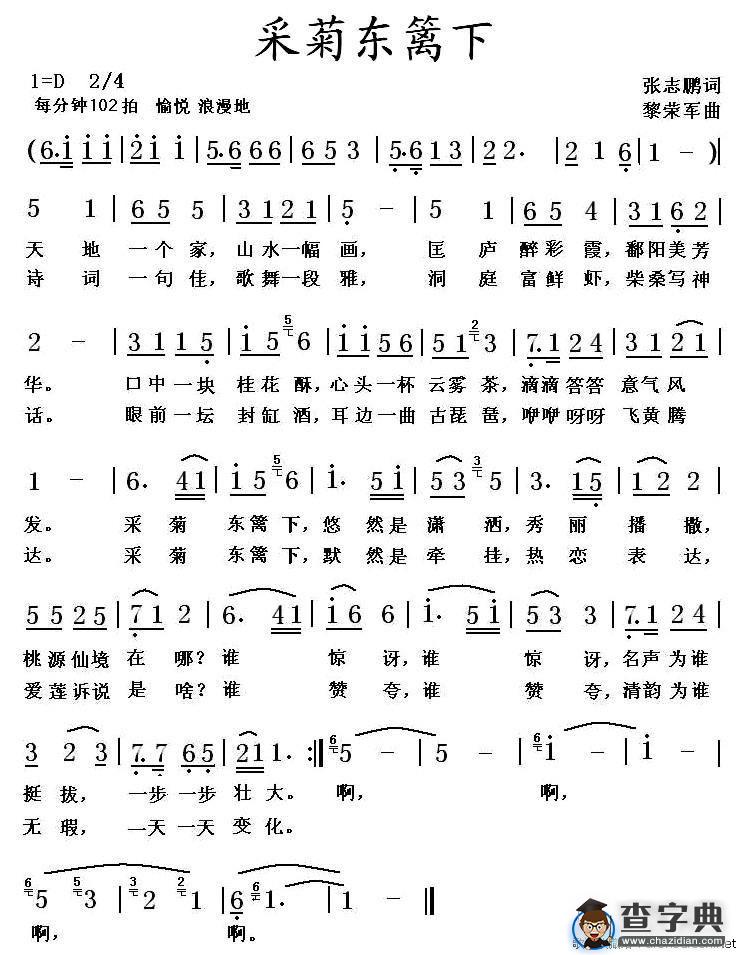 采菊东篱下
1=D 2/4
张志鹏词
每分钟102拍 愉悦 浪漫地
黎荣军曲
(6. i i i i | 2 i i | 5. 6 6 6 6 | 6 5 3 | 5. 6 1 3 | 2 2. | 2 1 6 | 1 - )|
5 1 | 6 5 5 | 3 1 2 1 | 5 - | 5 1 | 6 5 4 | 3 1 6 2 |
天 地 一个 家，山水一幅 画， 匡 庐 醉彩 霞，鄱阳美芳
诗 词 一句 佳，歌舞一段 雅， 洞 庭 富鲜 虾，柴桑写神
2 - | 3 1 1 5 | i 5 5 6 | i i 5 6 | 5 1 2 3 | 7. 1 2 4 | 3 2 1 |
华。 口中一块 桂花 酥，心头一杯 云雾 茶，滴滴答答 意气风
话。 眼前一坛 封缸 酒，耳边一曲 古琵 琶，咿咿呀呀 飞黄腾
1 - | 6. 4 1 | i 5 5 6 | i. 5 i | 5 3 3 5 | 3. 1 5 | 1 2 2 |
发。 采 菊 东篱 下，悠 然是 潇 洒，秀 丽 播 撒，
达。 采 菊 东篱 下，默 然是 牵 挂，热 恋 表 达，
5 5 2 5 | 7 1 2 | 6. 4 1 | i 6 6 | i. 5 i | 5 3 3 | 7. 1 2 4 |
桃源仙境 在 哪？谁 惊 讶，谁 惊 讶，名声为谁
爱莲诉说 是 啥？谁 赞 夸，谁 赞 夸，清韵为谁
3 2 3 | 7. 7 6 5 | 2 1 1. :‖ 6 5 - | - - | 6 i - | i - |
挺 拔， 一步一步 壮 大。 啊， 啊，
无 瑕， 一天一天 变 化。
6 5 5 3 | 3 2 2 1 | 6. 6 1 | 1 - ‖
啊， 啊。
查字典
www.chazidian.com